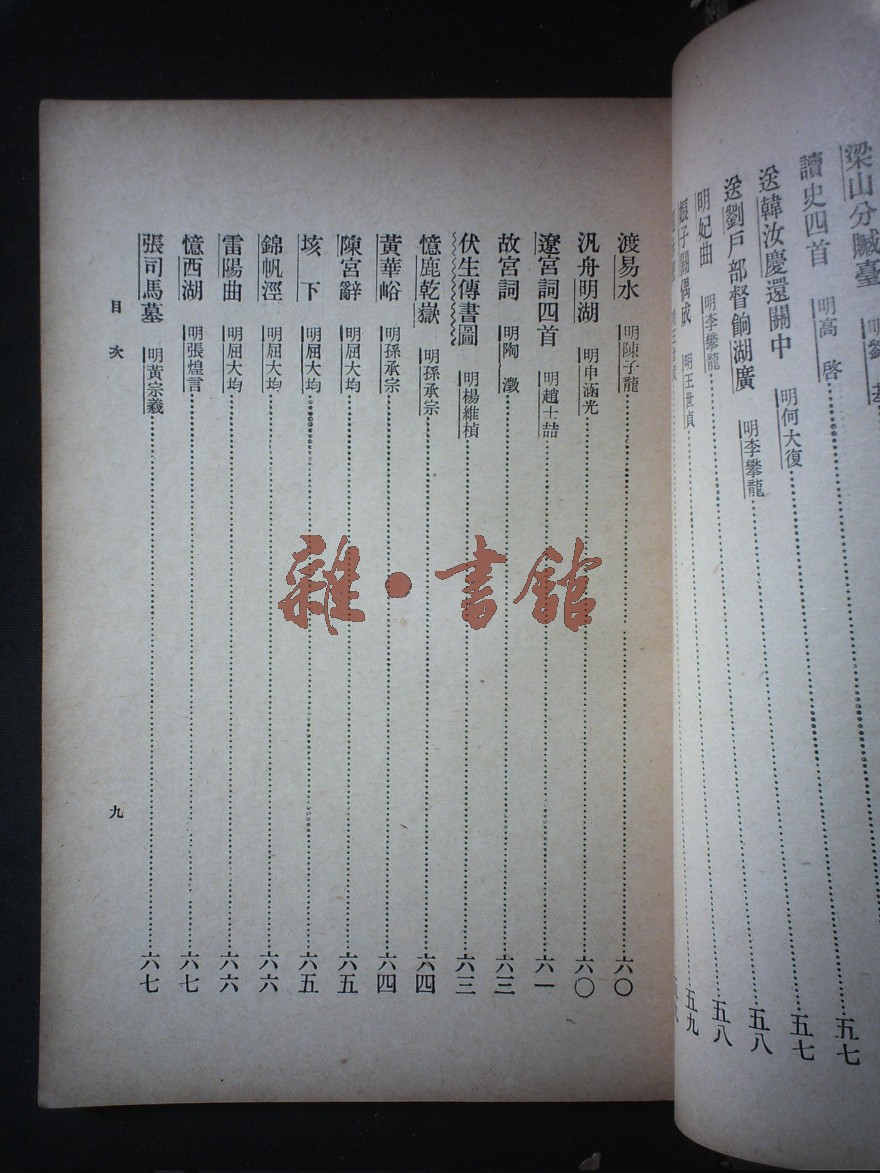 梁山分贓臺 明劉基 五七
讀史四首 明高啓 五七
送韓汝慶還關中 明何大復 五八
送劉戶部督餉湖廣 明李攀龍 五八
明妃曲 明李攀龍 五九
娘子關偶成 明王世貞
渡易水 明陳子龍 六〇
汎舟明湖 明申涵光 六〇
遼宮詞四首 明趙士喆 六一
故宮詞 明陶澂 六三
伏生傳書圖 明楊維楨 六三
憶鹿乾嶽 明孫承宗 六四
黃華峪 明孫承宗 六四
陳宮辭 明屈大均 六五
垓下 明屈大均 六五
錦帆涇 明屈大均 六六
雷陽曲 明屈大均 六六
憶西湖 明張煌言 六七
張司馬墓 明黃宗羲 六七
目次 九
雜·書館